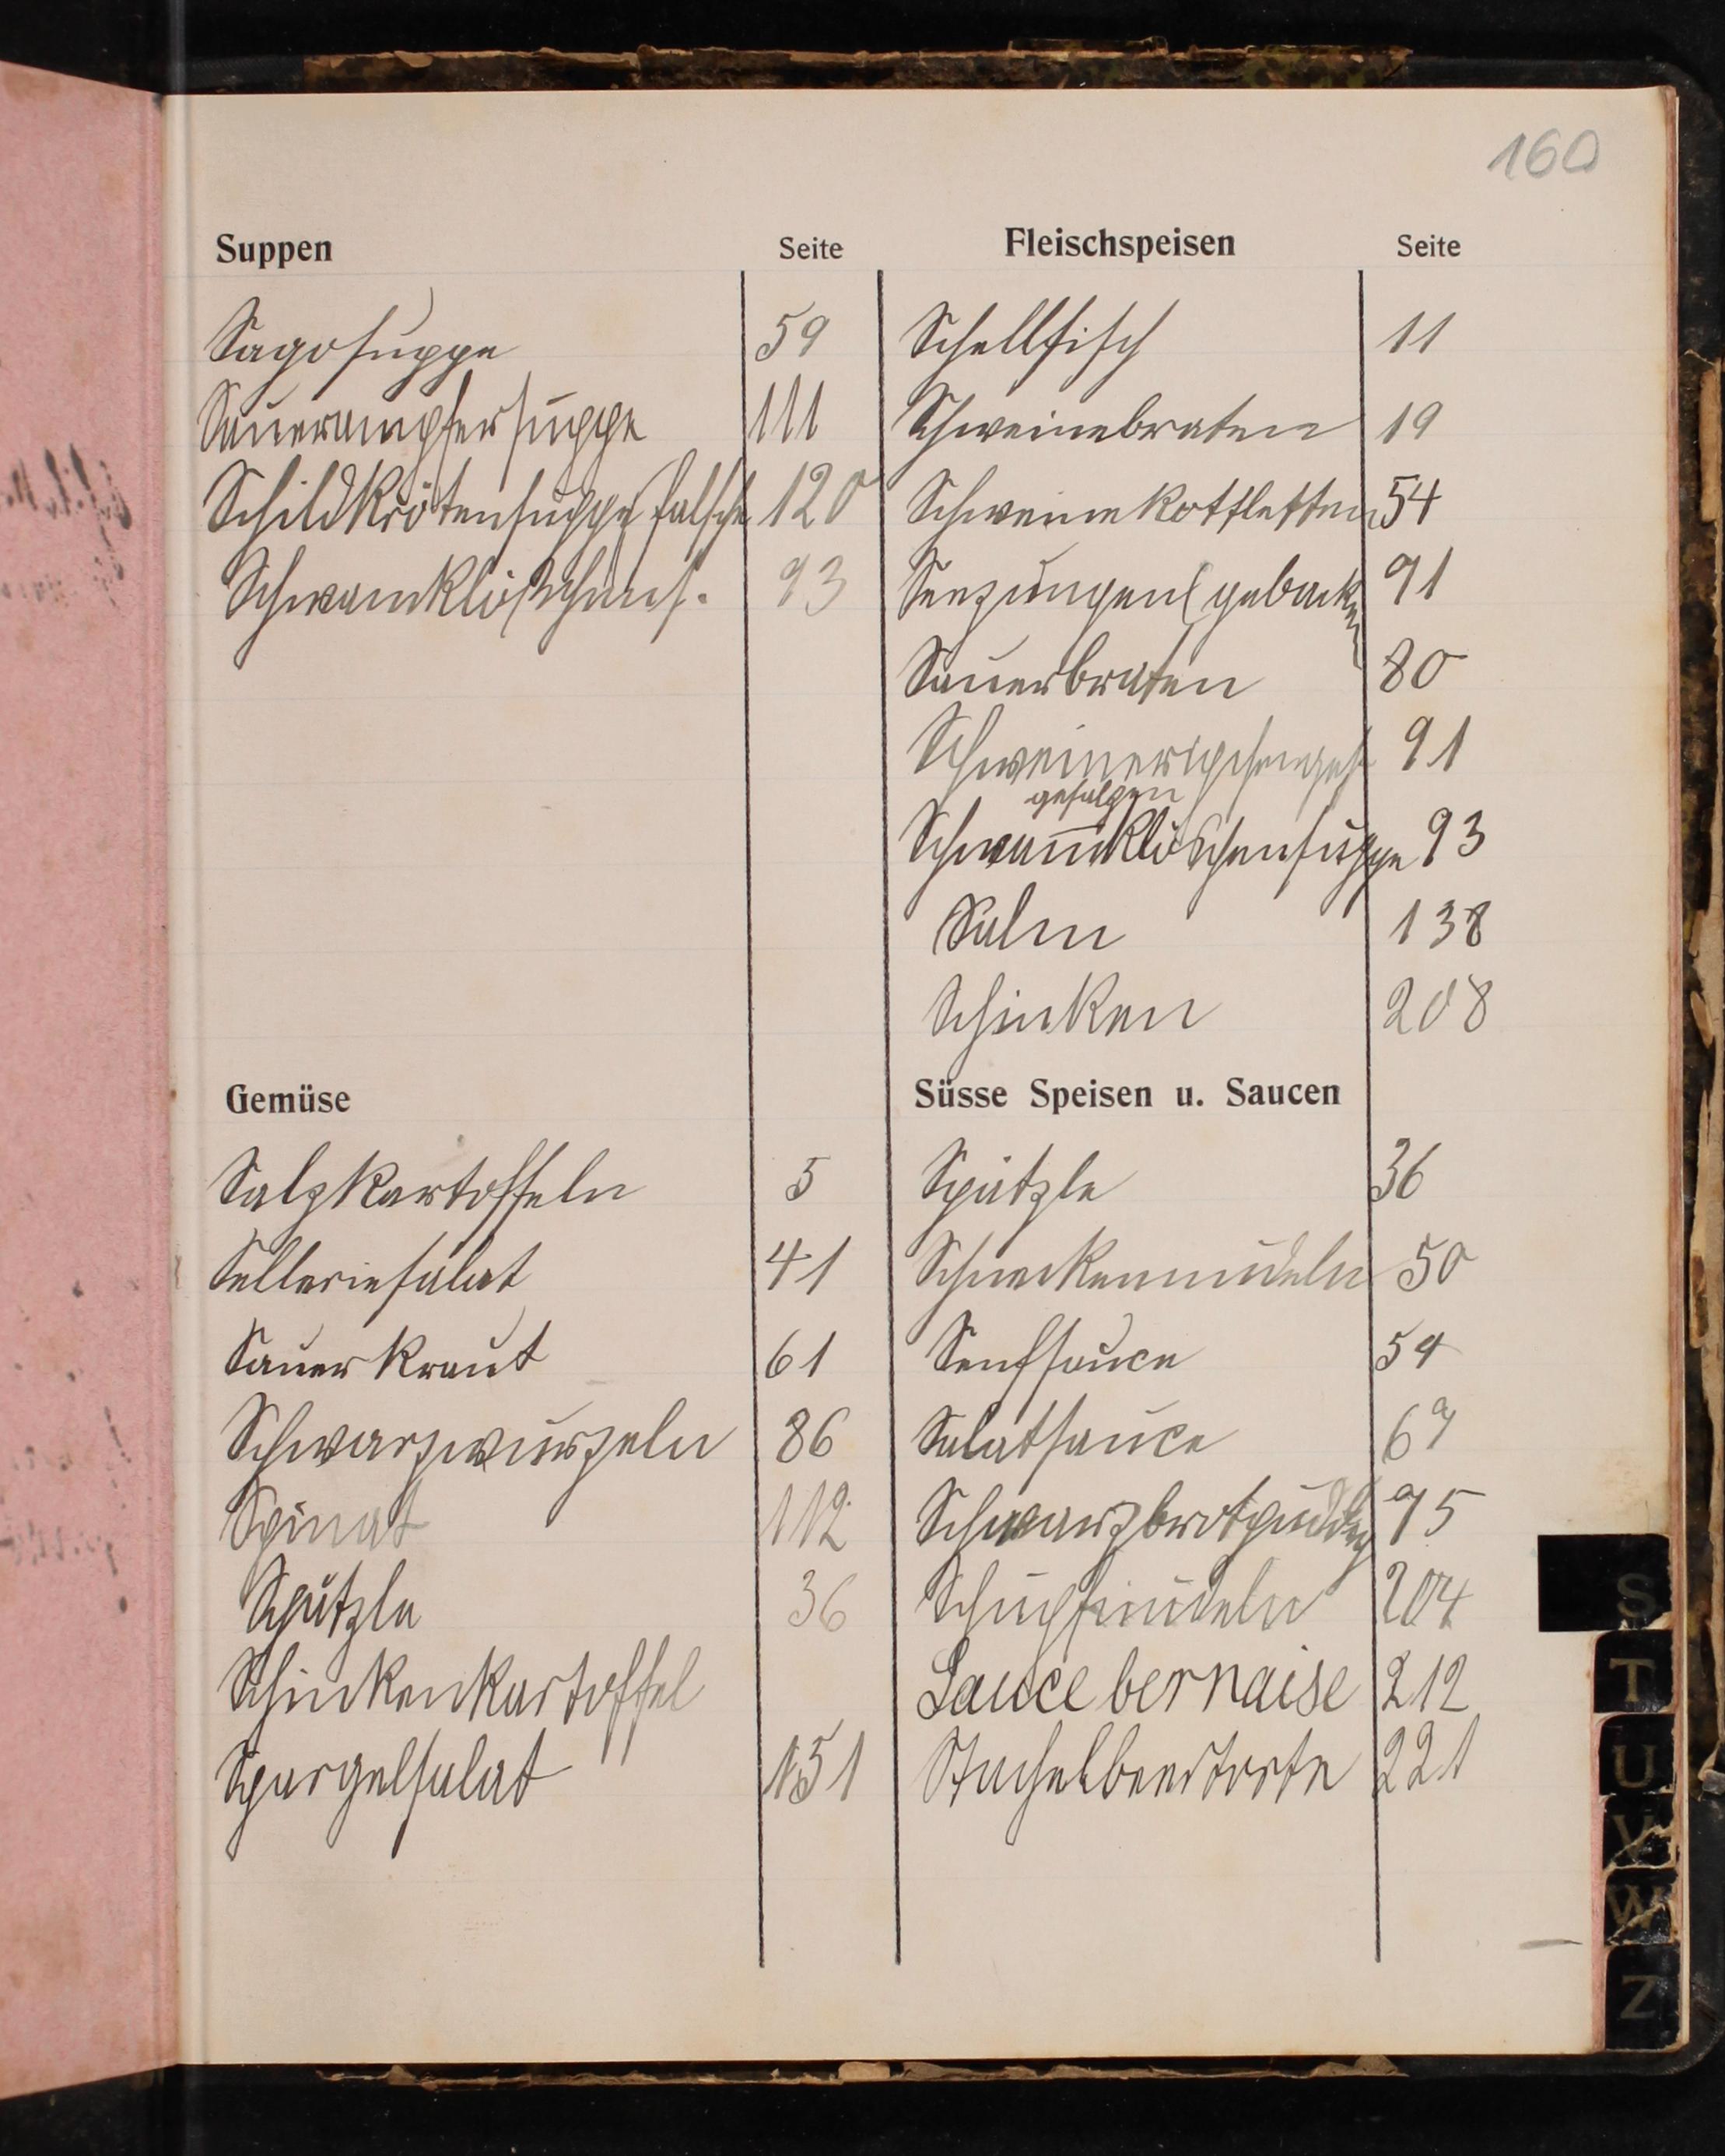 160
Suppen Seite
Sagosuppe 59
Sauerampfersuppe 111
Schildkrötensuppe falsche 120
Schwamklöschens. 93
Fleischspeisen Seite
Schellfisch 11
Schweinebraten 19
Schweinekottletten 54
Seezungen (gebacken 91
Sauerbraten 80
91
gesalzen
Schwam̅klöschensuppe 93
Salm 138
Schinken 208
Gemüse
Salzkartoffeln 5
Selleriesalat 41
Sauerkraut 61
Schwarzwurzeln 86
Spinat 112
Spätzle 36
Schinkenkartoffel
Spargelsalat 151
Süsse Speisen u. Saucen
Spätzle 36
Schneckennudeln 50
Senfsauce 54
Salatsauce 69
Schwarzbrotpudding 95
Schupfnudeln 204
Sauce bernaise 212
Stachelbeertorte 221
S
T
U
V
W
Z